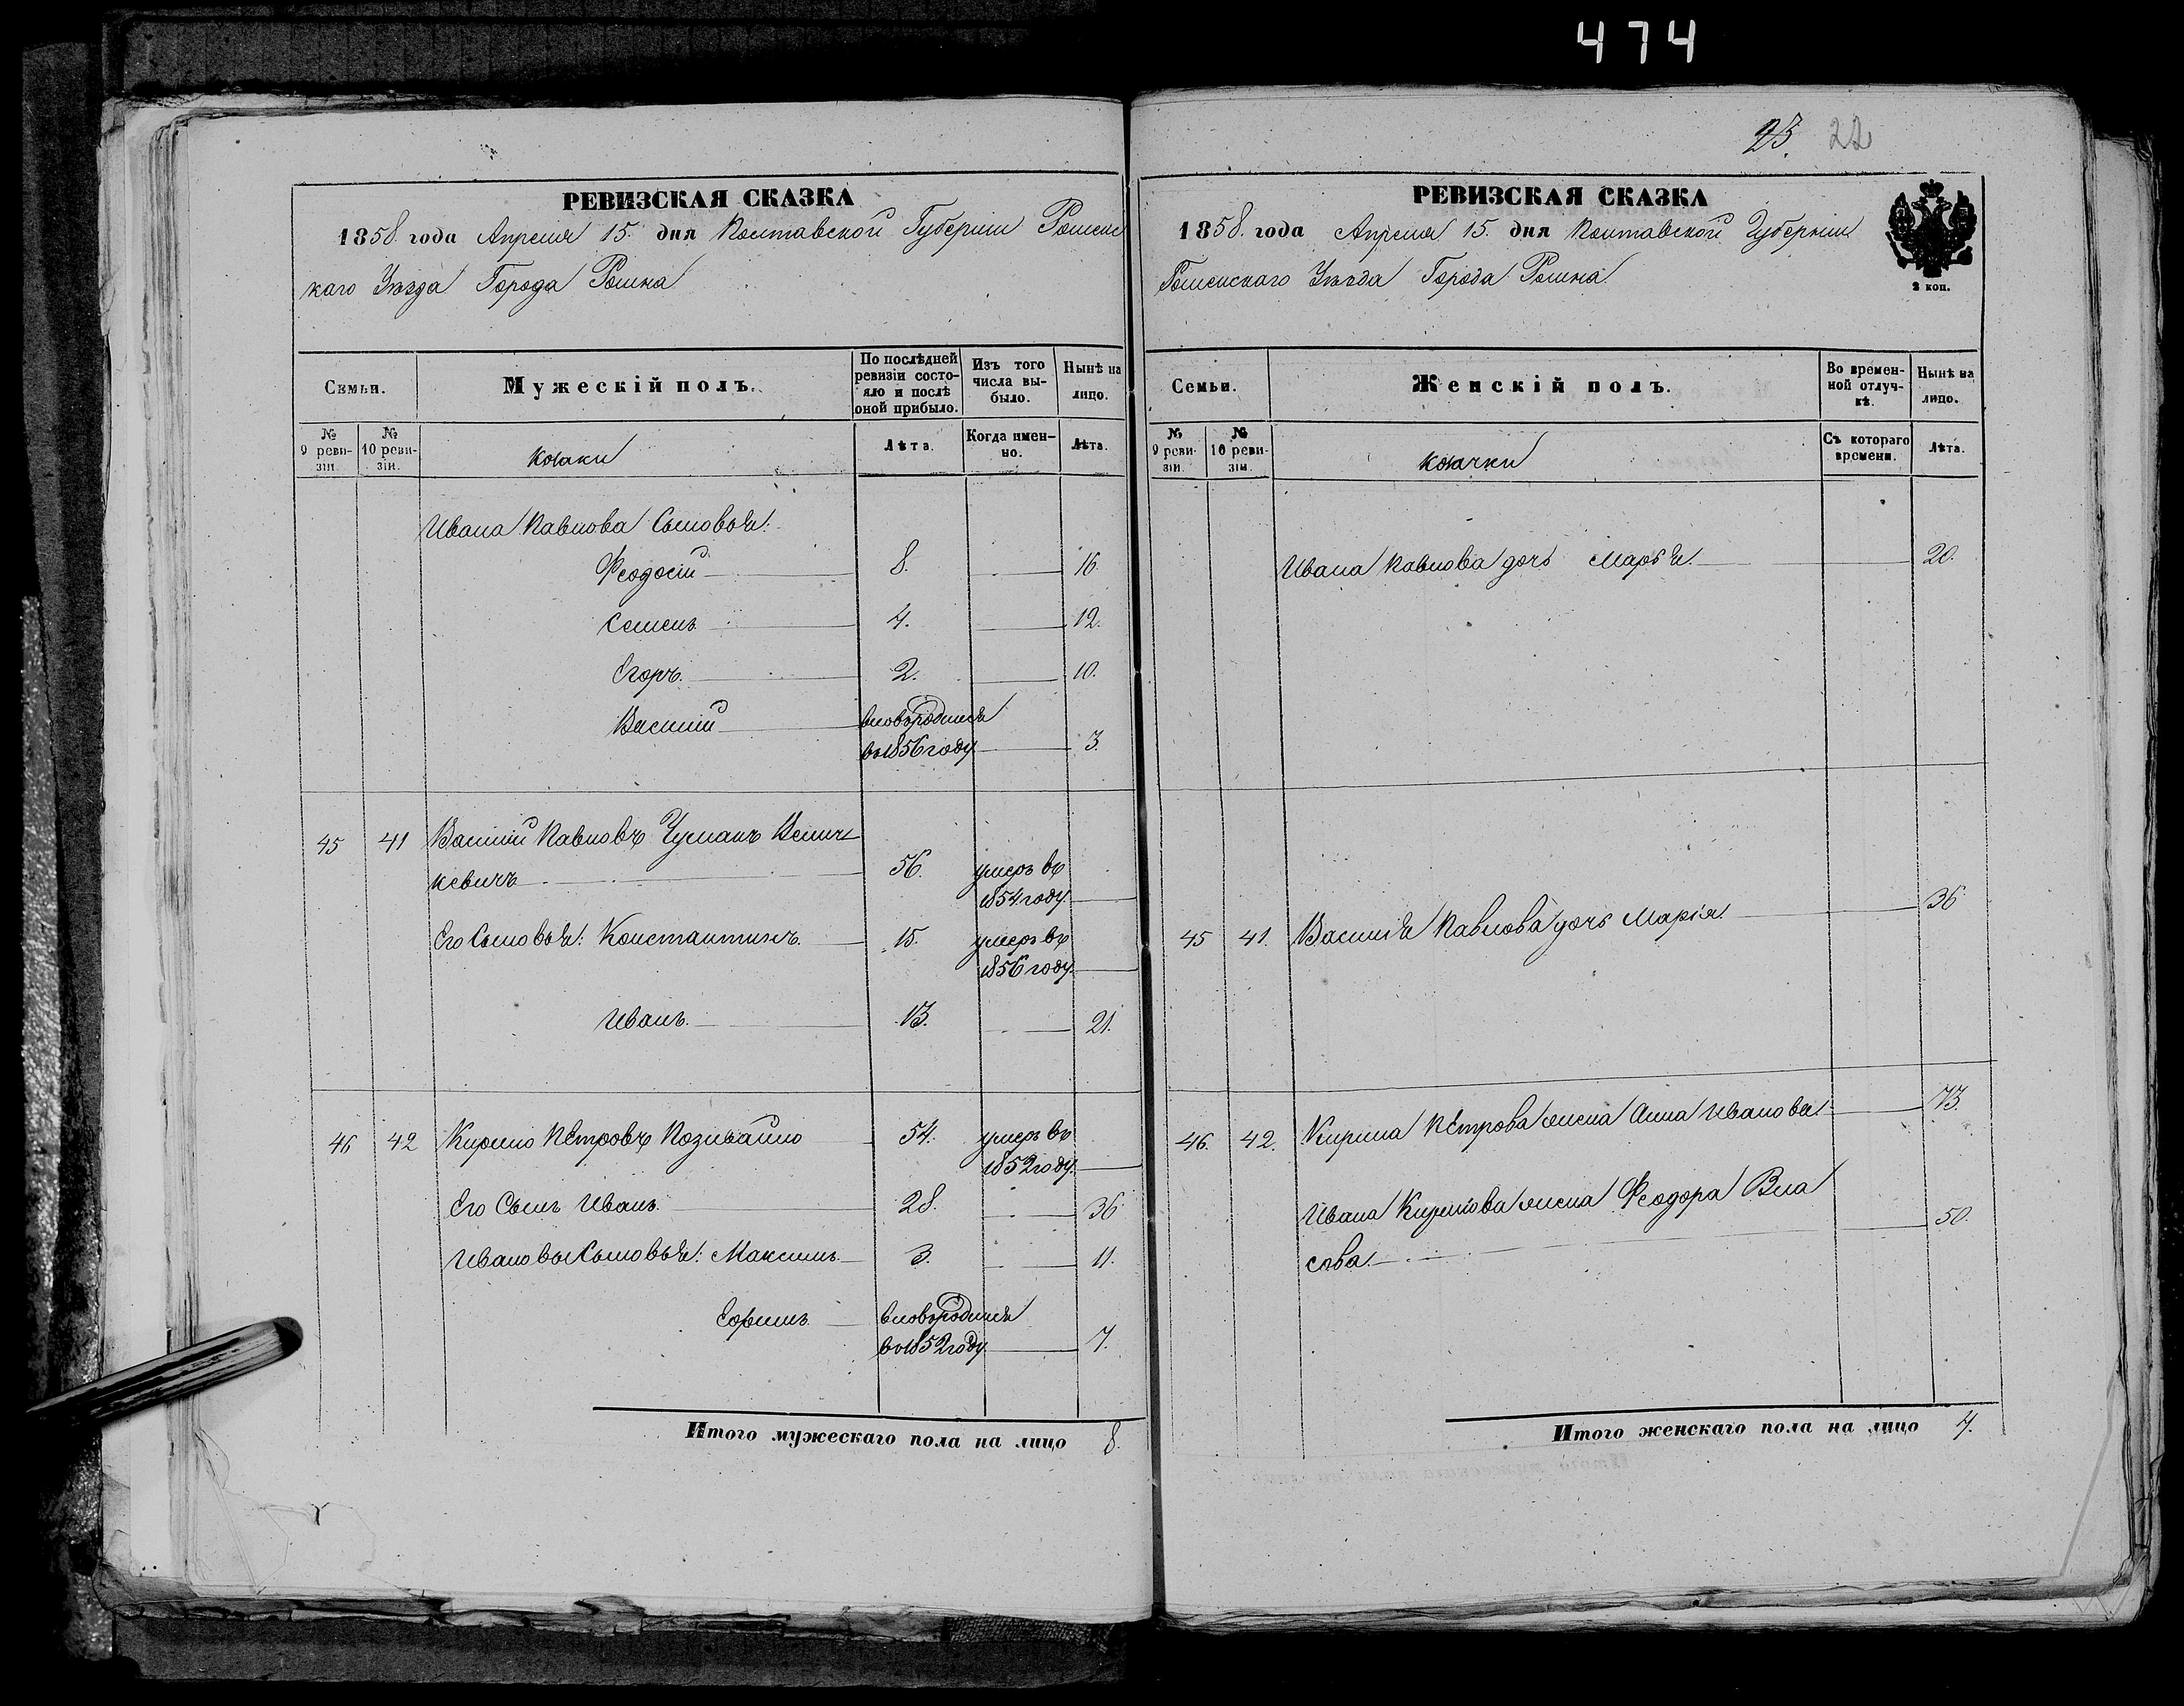 474
РЕВИЗСКАЯ СКАЗКА
1858. года Апреля 15. дня Полтавской Губернии Роменс
каго Уѣзда Города Ромна
Семьи.
Мужескій полъ.
По послѣдней ревизіи состояло и послѣ оной прибыло.
Изъ того числа выбыло.
Нынѣ на лицо.
№ 9 ревизіи.
№ 10 ревизіи.
козаки
Лѣта.
Когда именно.
Лѣта.
Ивана Павлова Сыновья:
Феодосій 8. 16
Семенъ 4. 12.
Егоръ. 2. 10.
Василий вновьродился
въ 1856 году 3.
45 41 Василий Павловъ Чуманъ Велич
кевичъ 56. умеръ въ
1854 году
Его Сыновья: Константинъ. 15. умеръ въ
1856 году
Иванъ. 13. 21.
46 42 Кирило Петровъ Позивайло 54. умеръ въ
1852 году.
Его Сынъ Иванъ. 28. 36
Ивановы Сыновья: Максимъ 3. 11.
Ефимъ вновьродился
въ 1852 году 7.
Итого мужескаго пола на лицо 8.
23. 22
РЕВИЗСКАЯ СКАЗКА
1858. года Апреля 15. дня Полтавской Губерніи
Роменскаго Уѣзда Города Ромна.
2 коп.
Семьи.
Женскій полъ.
Во временной отлучкѣ.
Нынѣ на лицо.
№ 9 ревизіи
№ 10 ревизіи.
козачки
Съ котораго времени.
Лѣта.
Ивана Павлова дочь Марья. 20.
45 41. Василия Павлова дочь Марія. 36
46. 42. Кирила Петрова жена Анна Иванова. 73.
Ивана Кирилова жена Феодора Вла
сова. 50.
Итого женскаго пола на лицо 4.